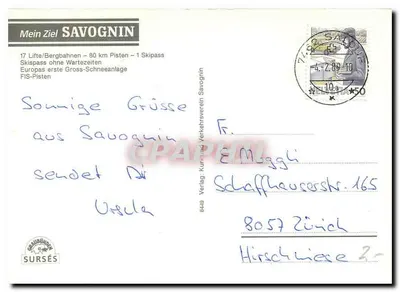 Mein Ziel SAVOGNIN
17 Lifte/Bergbahnen – 80 km Pisten – 1 Skipass
Skipass ohne Wartezeiten
Europas erste Gross-Schneeanlage
FIS-Pisten
Sonnige Grüsse
aus Savognin
sendet Dir
Ursula
GRAUBÜNDEN
SURSÉS
8448 Verlag: Kur- und Verkehrsverein Savognin
HELVETIA 50
10
Fr.
E. Moggli
Schaffhauserstr. 165
8057 Zürich
Hirschwiese
2.-
CPAPHIL